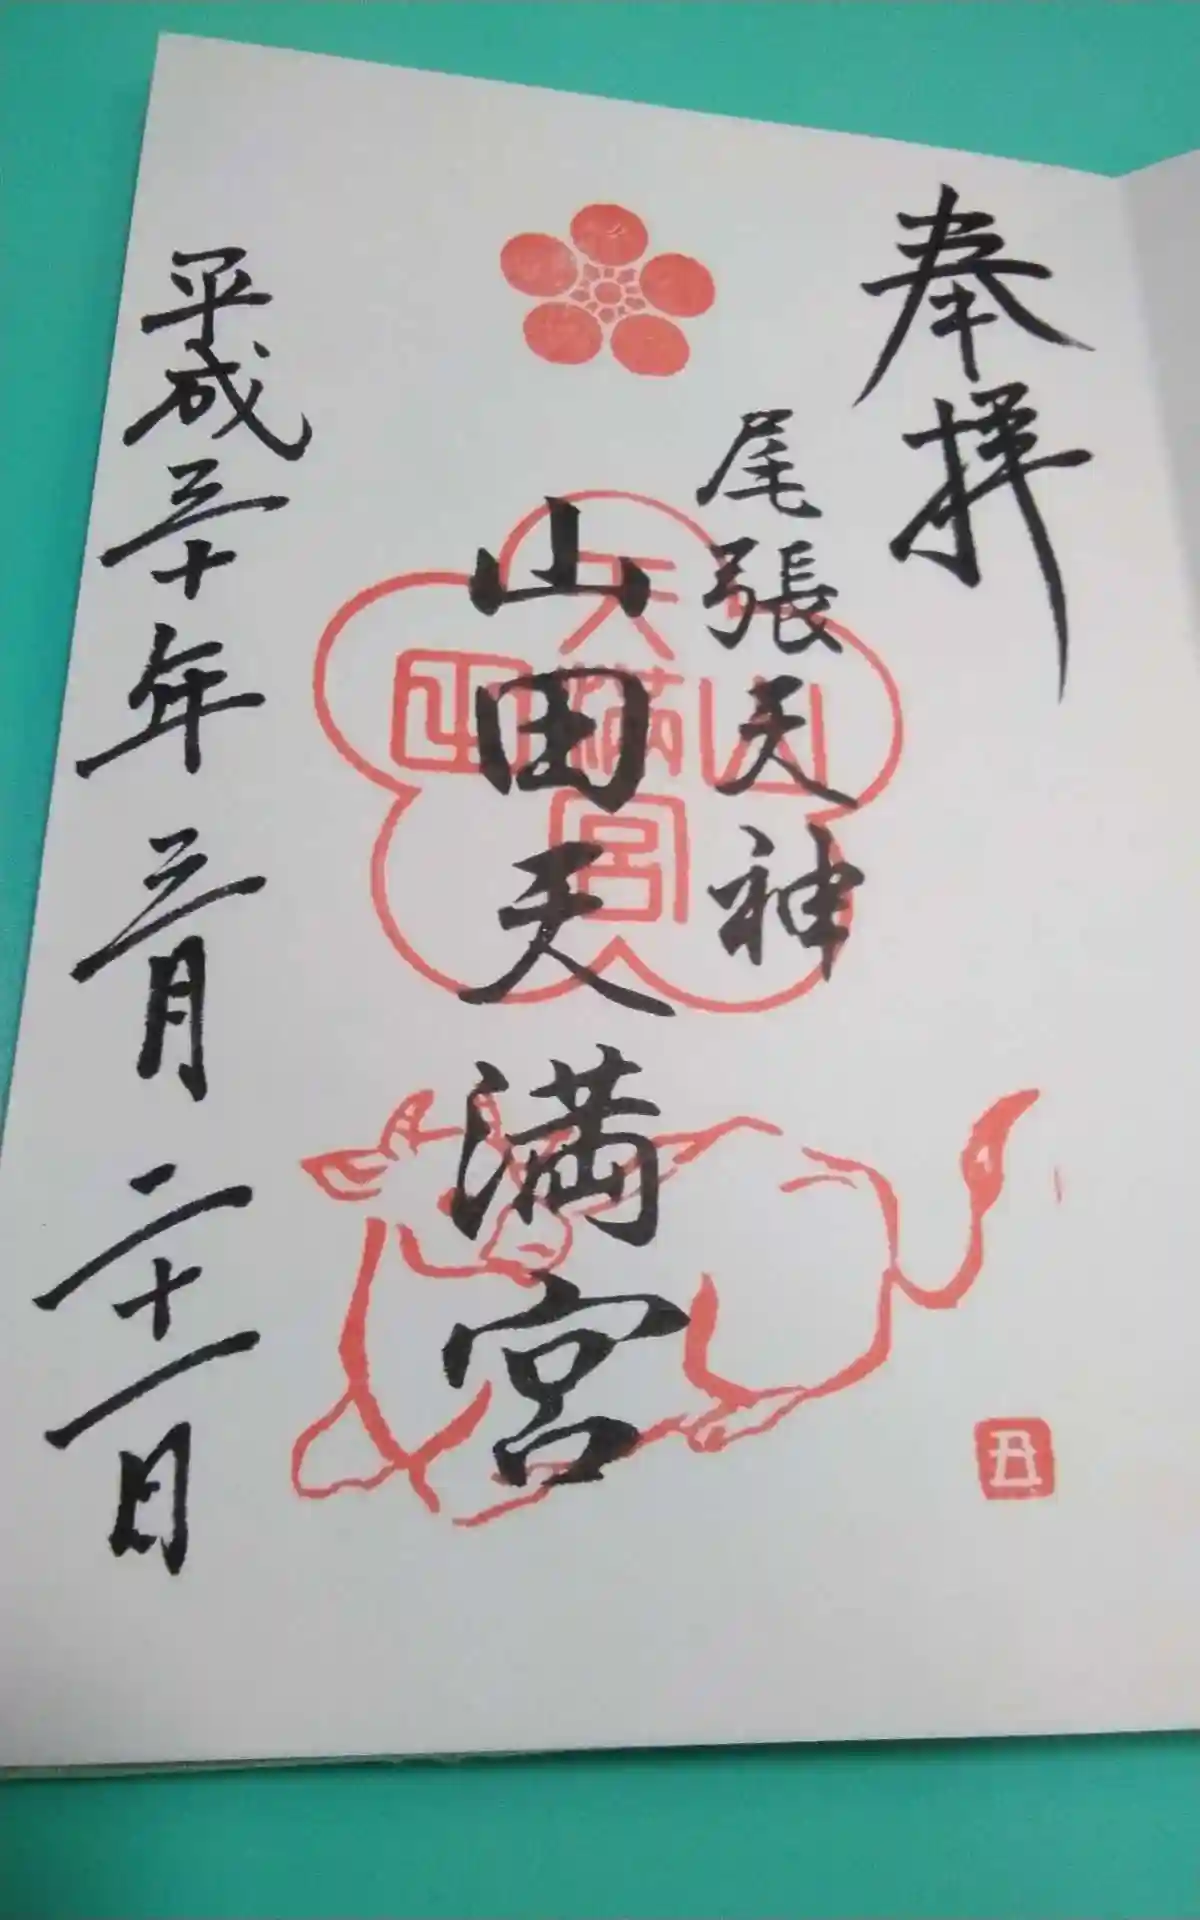 奉拝
尾張天神
山田天満宮
平成三十年三月二十一日
山田
天満宮
丑